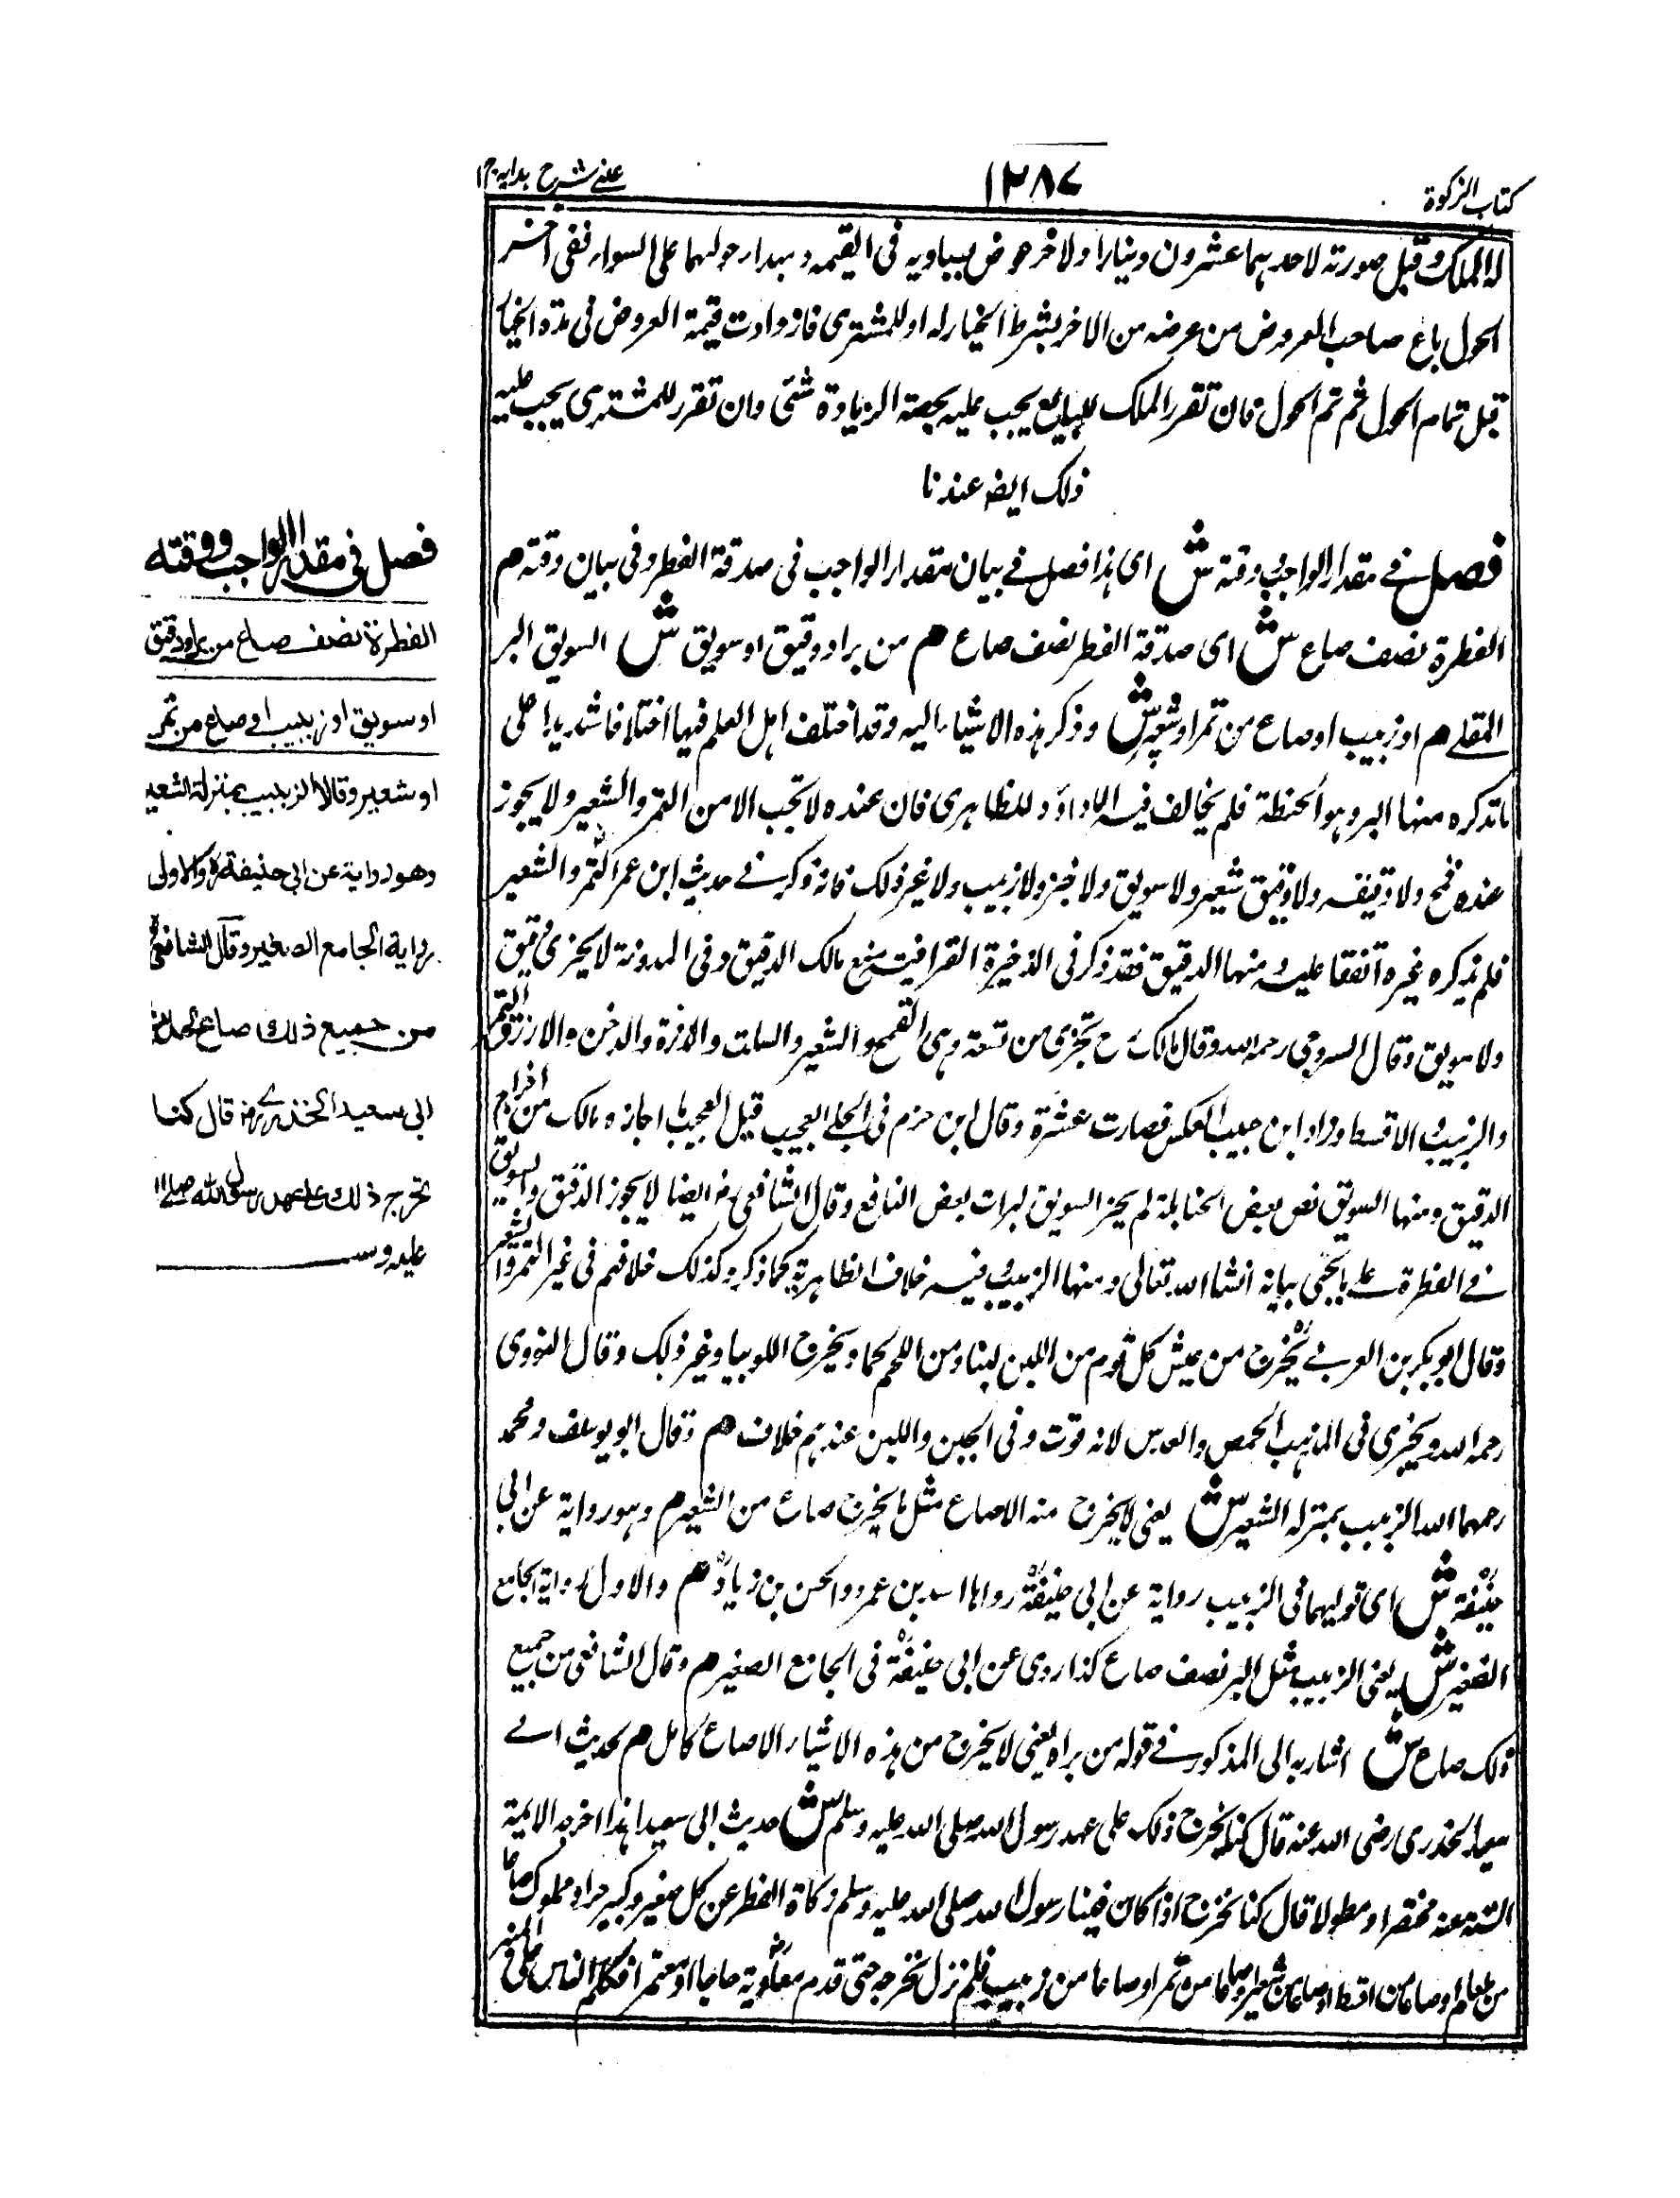 كتاب الزكوة
١٢٨٧
عینی شرح ہدایہ ج ١
له الملك وقيل صورته لاحدهما عشرون دينارا ولاخر عرض يساويه في القيمة ومبدا حولهما على السواء ففي اخر
الحول باع صاحب العروض من عرضه من الاخر بشرط الخيار له او للمشترى فازدادت قيمة العروض في مدة الخيار
قبل تمام الحول ثم تم الحول فان تقرر الملك للبايع يجب عليه بحصة الزيادة شئ وان تقرر للمشترى يجب عليه
ذلك ايض عندنا
فصل في مقدار الواجب ووقته ش اى هذا فصل في بيان مقدار الواجب في صدقة الفطر وفى بيان وقته م
الفطرة نصف صاع ش اى صدقة الفطر نصف صاع م من بر او دقيق او سويق ش السويق البر
المقلى م او زبيب او صاع من تمر او شعير ش وذكر هذه الاشياء اليه وقد اختلف اهل العلم فيها اختلافا شديدا على
ما تذكره منها البر وهو الحنطة فلم يخالف فيه الا داود الظاهرى فان عنده لا تجب الا من التمر والشعير ولا يجوز
عنده قمح ولا دقيقه ولا دقيق شعير ولا سويق ولا خبز ولا زبيب ولا غير ذلك فانه ذكر في حديث ابن عمر التمر والشعير
فلم يذكره غيره اتفقا عليه ومنها الدقيق فقد ذكر في الذخيرة القرافية منع مالك الدقيق وفى المدونة لا يجزى دقيق
ولا سويق وقال السروجى رحمه الله وقال مالك رح تجزى من تسعة وهى القمح والشعير والسلت والذرة والدخن والارز والتمر
والزبيب والاقط وزاد ابن حبيب العلس فصارت عشرة وقال ابن حزم في المحلى العجب قيل العجيب ما اجازه مالك من اخراج
الدقيق ومنها السويق نص بعض الحنابلة لم يجز السويق لفوات بعض النافع وقال الشافعى رض ايضا لا يجوز الدقيق والسويق
في الفطرة على ما يجئ بيانه انشا الله تعالى ومنها الزبيب وفيه خلاف الظاهرية كما ذكر وكذلك خلافهم في غير التمر والشعير
وقال ابو بكر بن العربى يخرج من عيش كل قوم من اللبن لبنا ومن اللحم لحما ويخرج اللوبيا وغير ذلك وقال النووى
رحمه الله ويجزى في المذهب الحمص والعدس لانه قوت وفى الجبن واللبن عندهم خلاف م وقال ابو يوسف ومحمد
رحمهما الله الزبيب بمنزلة الشعير ش يعنى لا يخرج منه الا صاع مثل ما يخرج صاع من الشعير م وهو رواية عن ابى
حنيفة ش اى قولهما في الزبيب رواية عن ابى حنيفة رواها اسد بن عمرو والحسن بن زياد م والاول رواية الجامع
الصغير ش يعنى الزبيب مثل البر نصف صاع كذا روى عن ابى حنيفة في الجامع الصغير م وقال الشافعى من جميع
ذلك صاع ش اشار به الى المذكور في قوله من بر اه يعنى لا يخرج من هذه الاشياء الا صاع كامل م لحديث ابى
سعيد الخدرى رضى الله عنه قال كنا نخرج ذلك على عهد رسول الله صلى الله عليه وسلم ش حديث ابى سعيد هذا اخرجه الايمة
الستة عنه مختصرا ومطولا قال كنا نخرج اذا كان فينا رسول الله صلى الله عليه وسلم زكاة الفطر عن كل صغير وكبير حر او مملوك صاعا
من طعام او صاعا من اقط او صاعا من شعير او صاعا من تمر او صاعا من زبيب فلم نزل نخرجه حتى قدم معاوية حاجا او معتمرا فكلم الناس على المنبر
فصل في مقدار الواجب ووقته
الفطرة نصف صاع من بر او دقيق
او سويق او زبيب او صاع من تمر
او شعير وقالا الزبيب بمنزلة الشعير
وهو رواية عن ابى حنيفة رح والاولى
رواية الجامع الصغير وقال الشافعى
من جميع ذلك صاع لحديث
ابى سعيد الخدرى رض قال كنا
نخرج ذلك على عهد رسول الله صلى الله
عليه وسـ